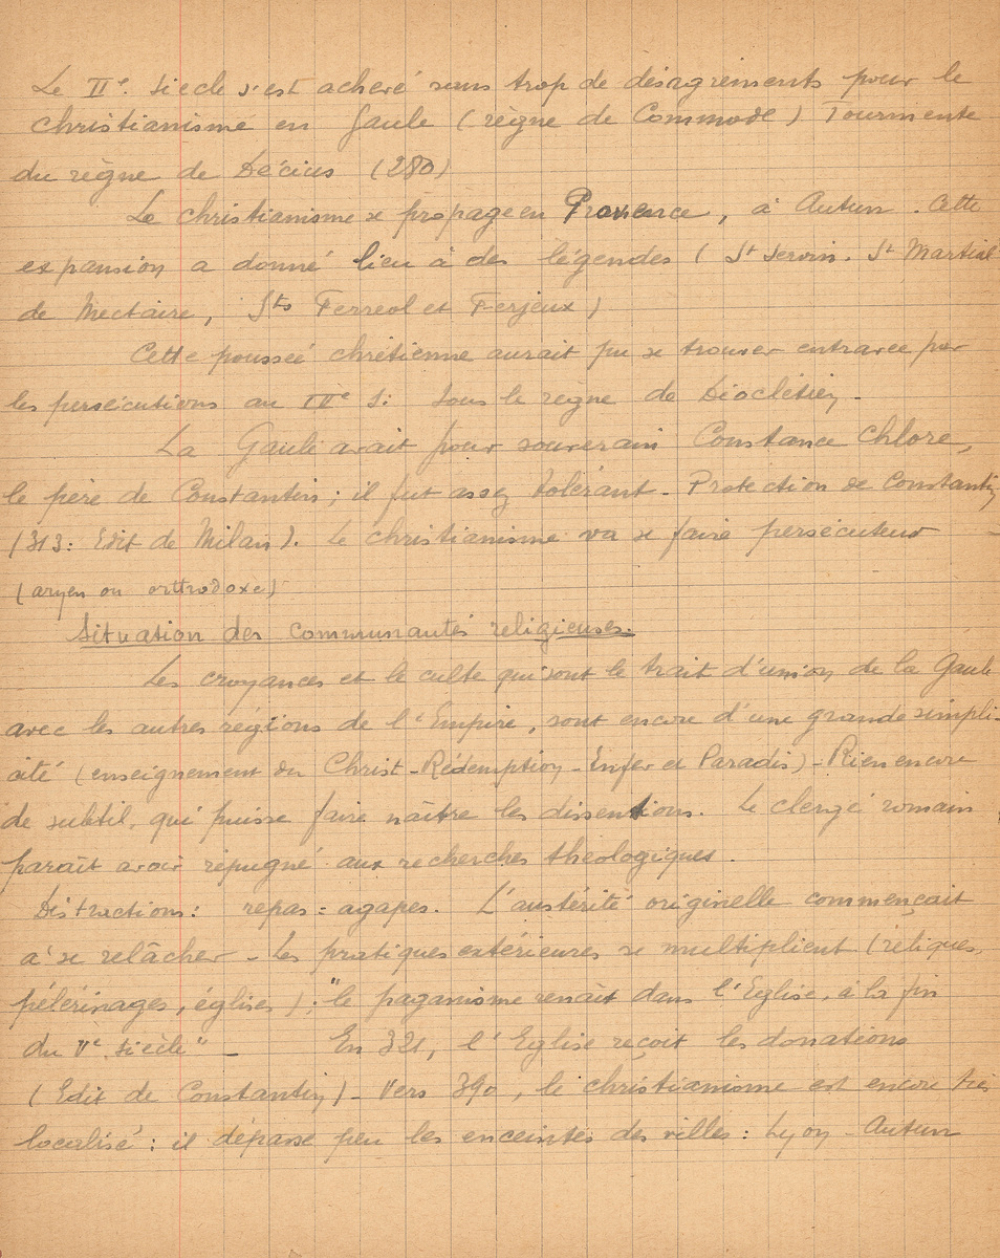 Le IIe. siecle s'est achevé sans trop de désagréments pour le
christianisme en Gaule (règne de Commode) Tourmente
du règne de Décius (280)
Le christianisme se propage en Provence, à Autun. Cette
expansion a donné lieu à des légendes (St Servin. St Martial
de Nectaire, Sts Ferreol et Ferjeux)
Cette pousseé chrétienne aurait pu se trouver entravee par
les persécutions au IVe S: sous le règne de Dioclétien.
La Gaule avait pour souverain Constance Chlore,
le père de Constantin; il fut assez tolérant - Protection de Constantin
(313: Edit de Milan). Le christianisme va se faire persécuteur
(aryen ou orthodoxe)
Situation des communautés religieuses.
Les croyances et le culte qui sont le trait d'union de la Gaule
avec les autres régions de l'Empire, sont encore d'une grande simpli-
cité (enseignement du Christ - Rédemption - Enfer et Paradis) - Rien encore
de subtil, qui puisse faire naître les dissentions. Le clergé romain
paraît avoir répugné aux recherches théologiques.
Distractions: repas = agapes. L'austérité originelle commençait
à se relâcher - Les pratiques extérieures se multiplient (reliques,
pélérinages, églises); "le paganisme renaît dans l'Eglise, à la fin
du Ve siècle" - En 321, l'Eglise reçoit les donations
(Edit de Constantin) - Vers 390, le christianisme est encore très
localisé: il dépasse peu les enceintes des villes: Lyon - Autun